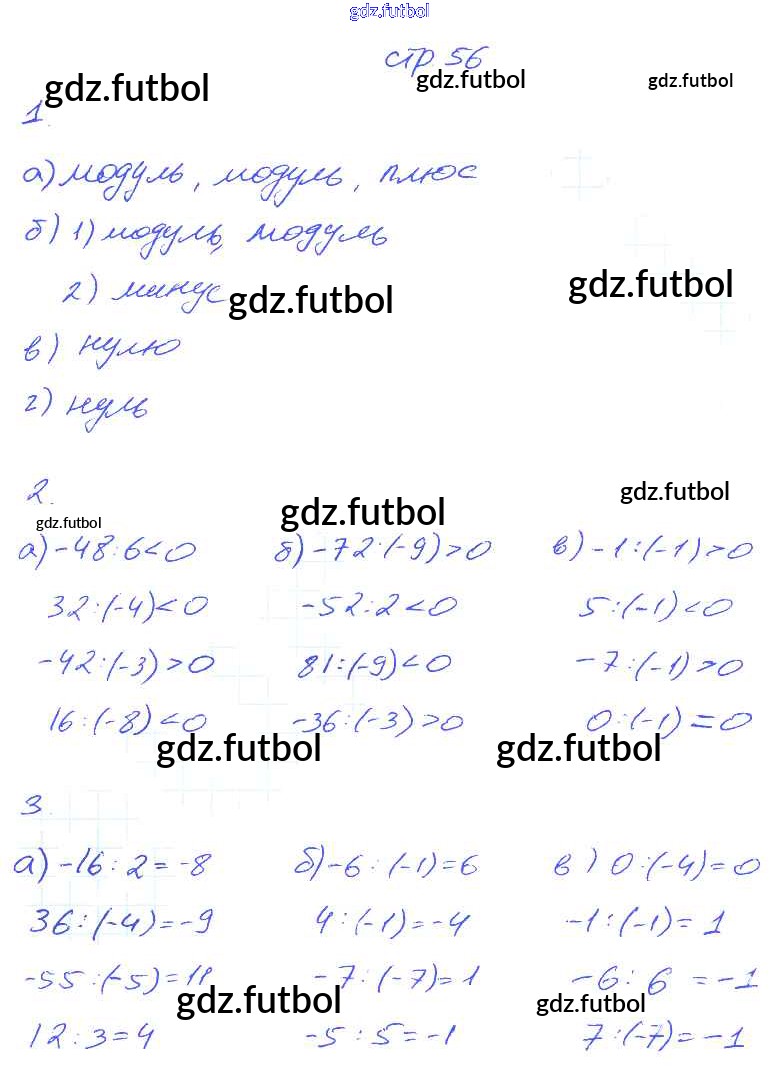 gdz.futbol
стр 56
gdz.futbol gdz.futbol gdz.futbol
1.
а) модуль, модуль, плюс
б) 1) модуль, модуль
2) минус
gdz.futbol gdz.futbol
в) нулю
г) нуль
2.
gdz.futbol gdz.futbol gdz.futbol
а) -48:6<0 б) -72:(-9)>0 в) -1:(-1)>0
32:(-4)<0 -52:2<0 5:(-1)<0
-42:(-3)>0 81:(-9)<0 -7:(-1)>0
16:(-8)<0 -36:(-3)>0 0:(-1)=0
gdz.futbol gdz.futbol
3.
а) -16:2=-8 б) -6:(-1)=6 в) 0:(-4)=0
36:(-4)=-9 4:(-1)=-4 -1:(-1)=1
-55:(-5)=11 -7:(-7)=1 -6:6=-1
gdz.futbol gdz.futbol
12:3=4 -5:5=-1 7:(-7)=-1